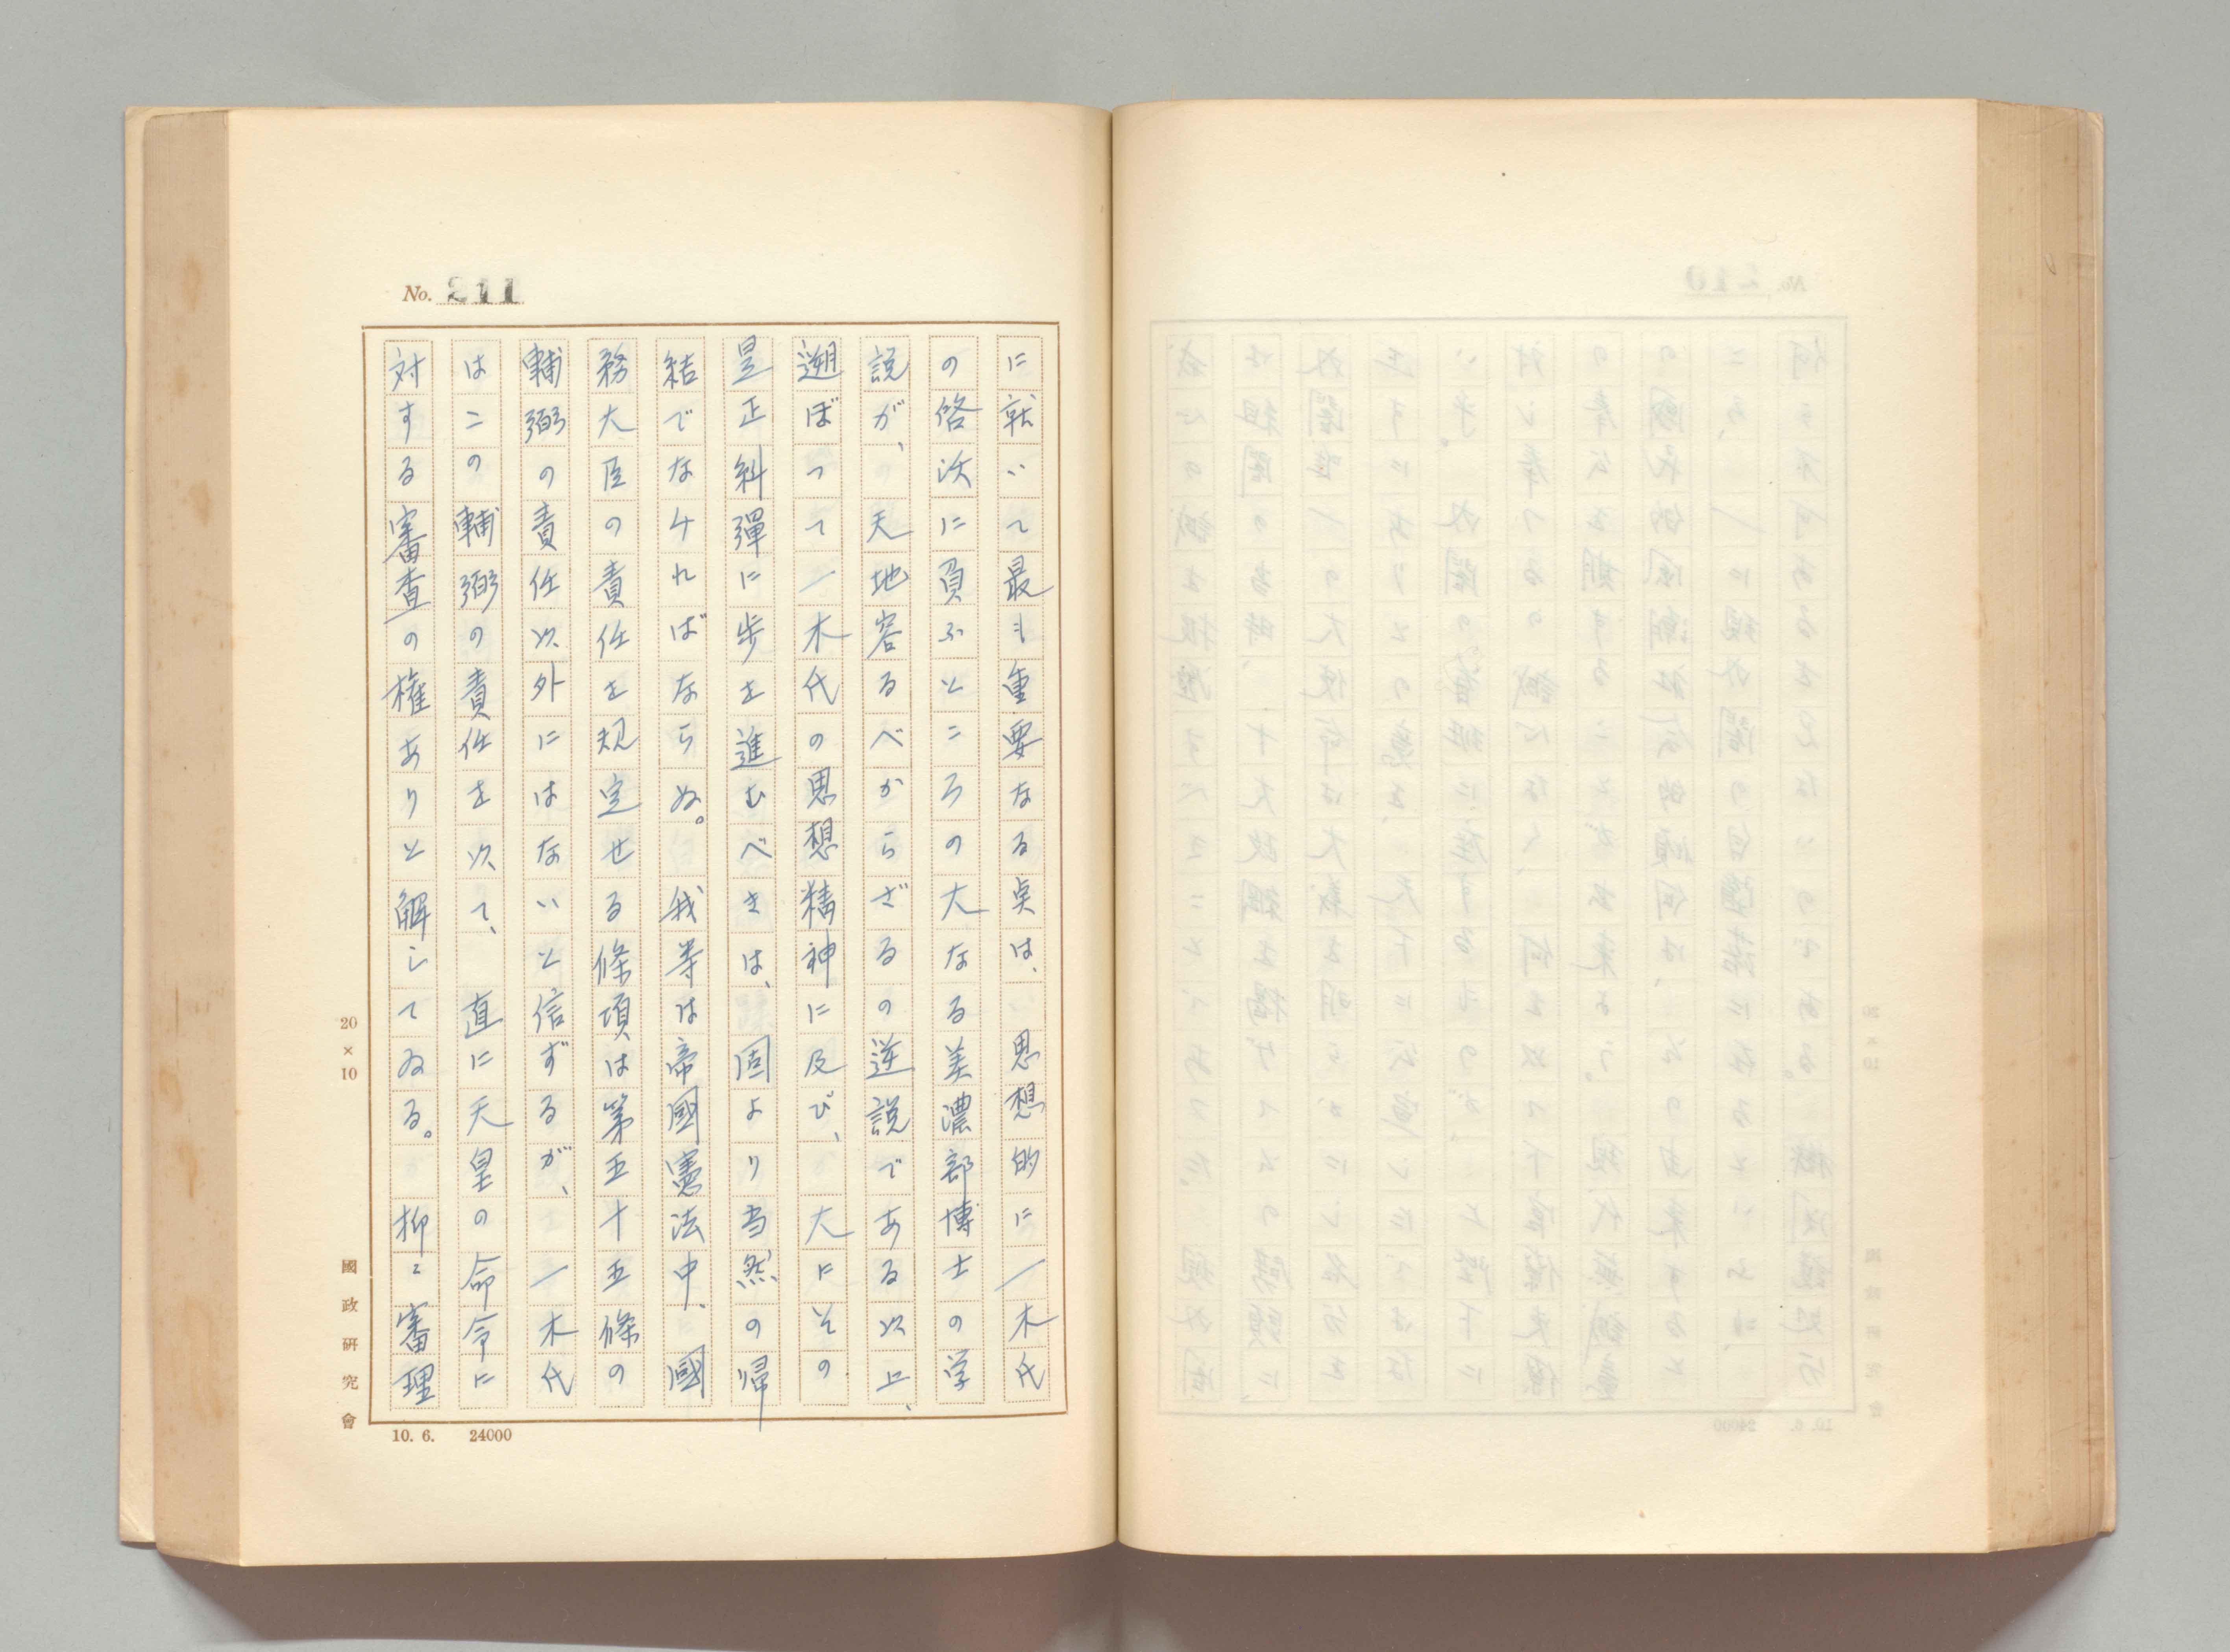 No. 211
に就いて最も重要なる点は、思想的に一木氏
の啓沃に負ふところの大なる美濃部博士の学
説が、天地容るべからざるの逆説である以上、
遡ぼつて一木氏の思想精神に及び、大にその
是正糾彈に歩を進むべきは、固より当然の帰
結でなければならぬ。我等は帝國憲法中、國
務大臣の責任を規定せる條項は第五十五條の
輔弼の責任以外にはないと信ずるが、一木氏
はこの輔弼の責任を以て、直に天皇の命令に
対する審査の権ありと解してゐる。抑〻審理
20×10
國政研究會
10. 6. 24000